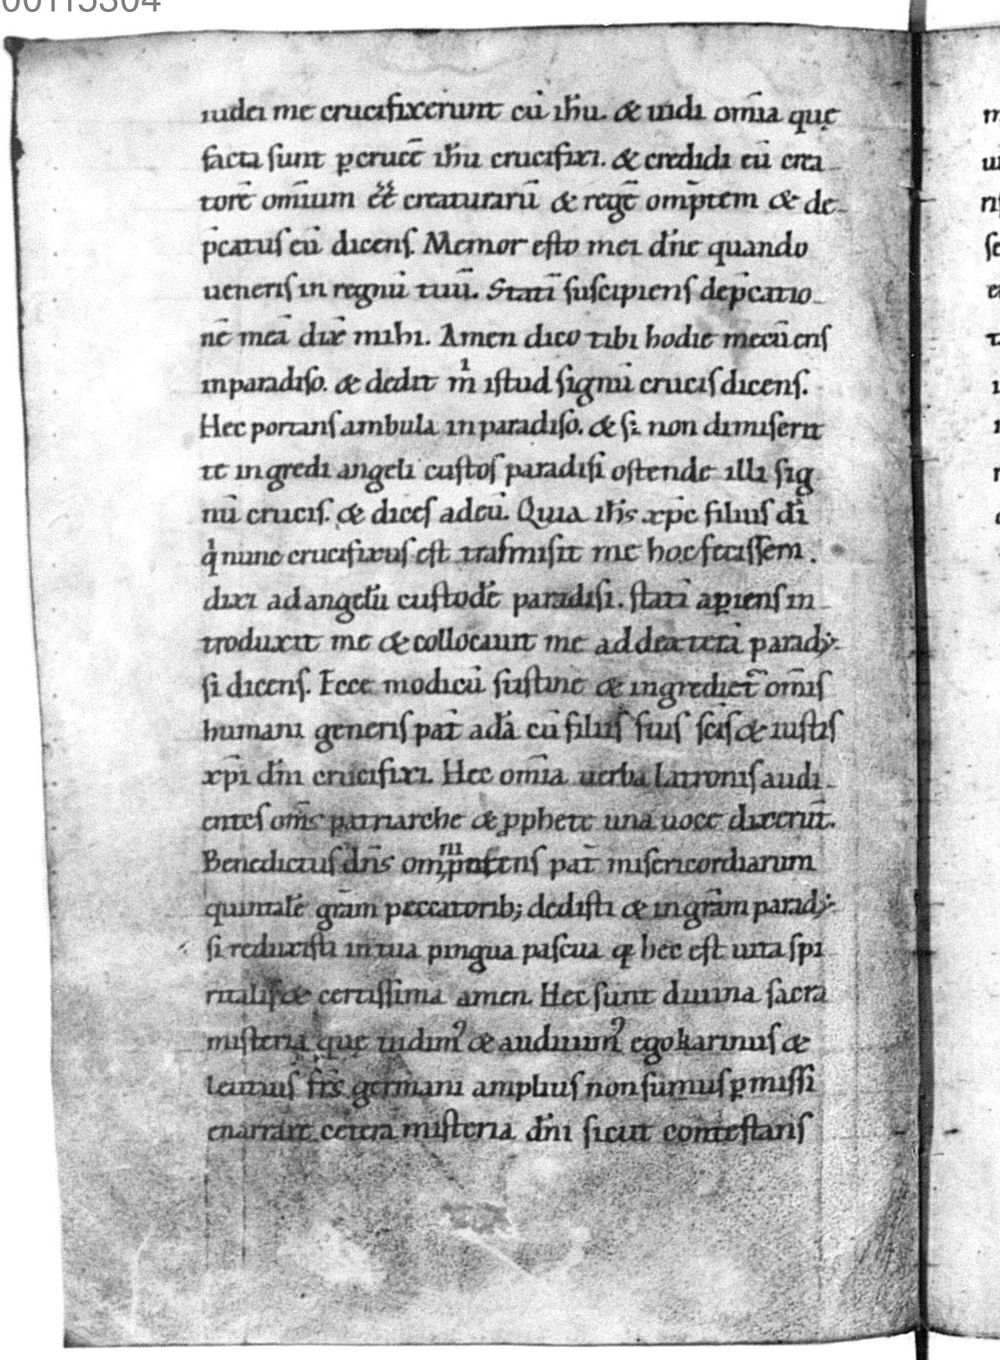 00115304
iudei me crucifixerunt cū ih̄u. & uidi om̄ia quę
facta sunt ꝑ crucē ih̄u crucifixi. & credidi eū crea
torē om̄ium ēē creaturarū & regē om̄ptem & de
p̄catus eū dicens. Memor esto mei dn̄e quando
ueneris in regnū tuū. Statī suscipiens dep̄catio
nē meā dix̄ mihi. Amen dico tibi hodie mecū eris
in paradiso. & dedit m̄ istud signū crucis dicens.
Hec portans ambula in paradiso. & si non dimiserit
te ingredi angeli custos paradisi ostende illi sig
nū crucis. & dices ad eū. Quia ih̄s xp̄c filius dī
q̇ nunc crucifixus est trāsmisit me hoc fecissem.
dixi ad angelū custodē paradisi. statī aperiens in
troduxit me & collocauit me ad dexterā parady
si dicens. Ecce modicū sustine & ingrediet̄ om̄is
humani generis pat̄ adā cū filiis suis sc̄is & iustis
xp̄i dn̄i crucifixi. Hec om̄ia uerba latronis audi
entes om̄s patriarche & ꝓphete una uoce dixerūt.
Benedictus dn̄s om̄p̄otens pat̄ misericordiarum
qui talē grām peccatorib; dedisti & in grām parady
si reduxisti in tua pingua pascua q hec est uita spi
ritalis & certissima amen. Hec sunt diuina sacra
misteria que uidim᾿ & audiuim᾿ ego karinus &
leutius fr̄s germani amplius non sumus ꝑmissi
enarrare cetera misteria dn̄i sicut contestans